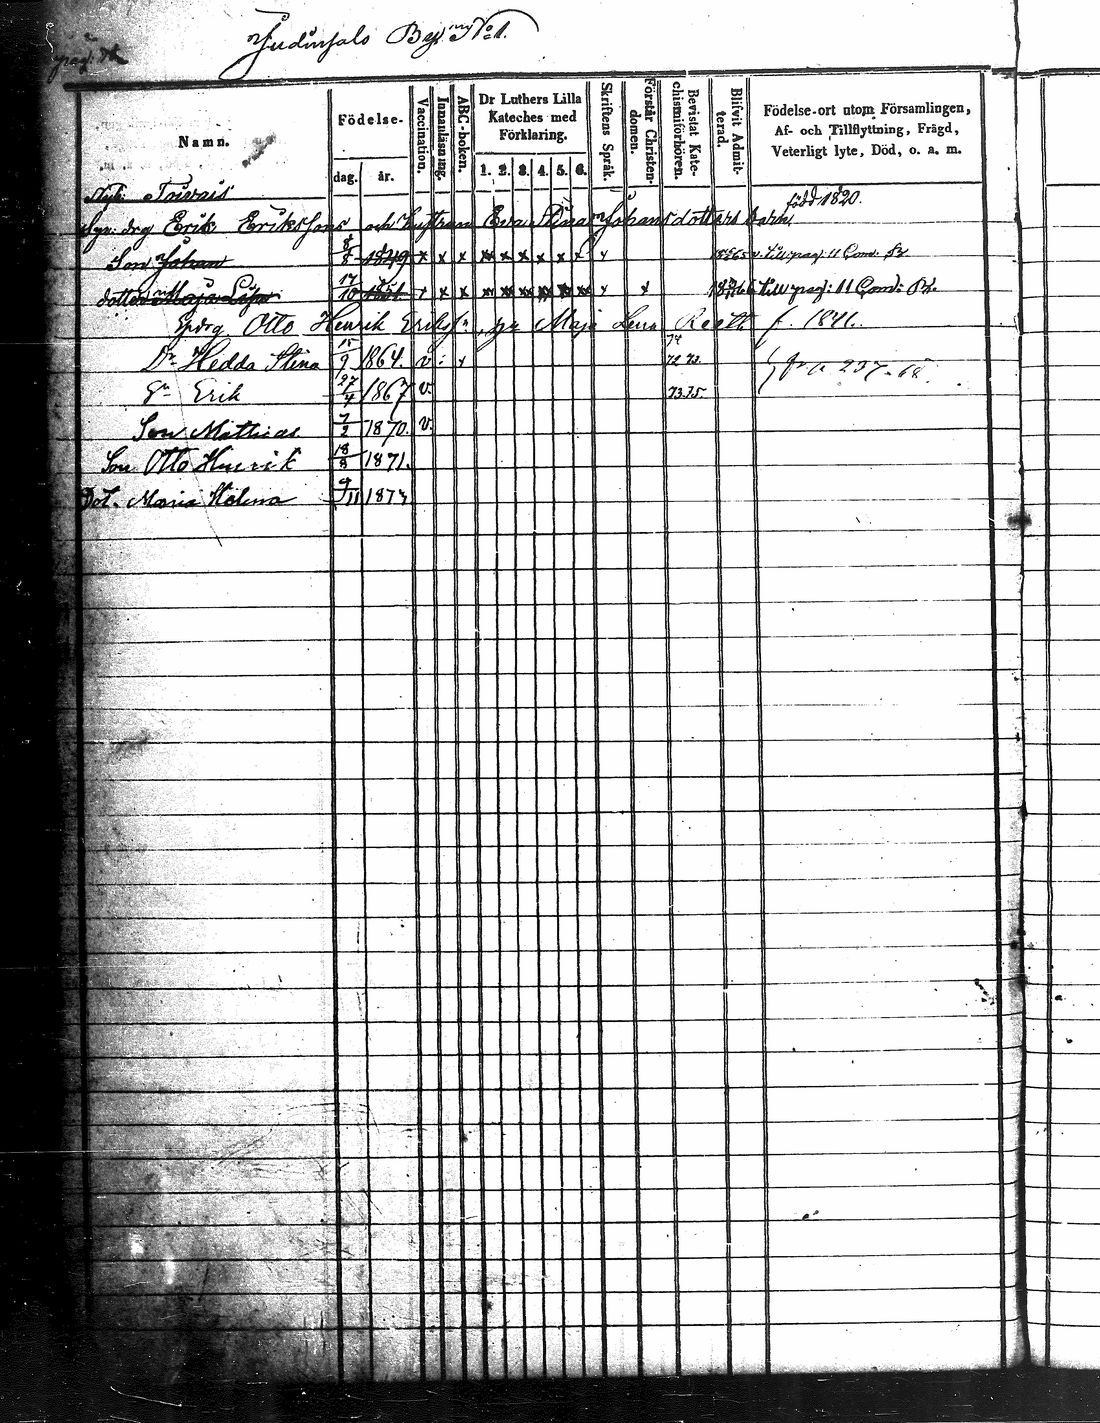 Judinsalo By No 1.
pag:
Namn.
Födelse-
dag. år.
Vaccination.
Innanläsning.
ABC-boken.
Dr Luthers Lilla Kateches med Förklaring.
1. 2. 3. 4. 5. 6.
Skriftens Språk.
Förstår Christendomen.
Bevistat Katechismiförhören.
Blifvit Admitterad.
Födelse-ort utom Församlingen,
Af- och Tillflyttning, Frägd,
Veterligt lyte, Död, o. a. m.
Toivais född 1820.
drg Erik Eriksons och hustrun Eva Stina Johansdotters barn
Son Johan 8/8 1849 x x x x x x x x x x till pag: 11 Conc. Br
dotter Maja Lisa 17/10 1851 x x x x x x x x x x x till pag: 11 Conc: Br.
Otto Henrik Eriks Maja Lena f. 1841.
Dr Hedda Stina 15/9 1864. v. x 72 73. 74
Sn Erik 27/4 1867 v. 73.75.
Son Mathias 7/2 1870. v.
Son Otto Henrik 18/8 1871.
Dot. Maria Helena 9/11 1873